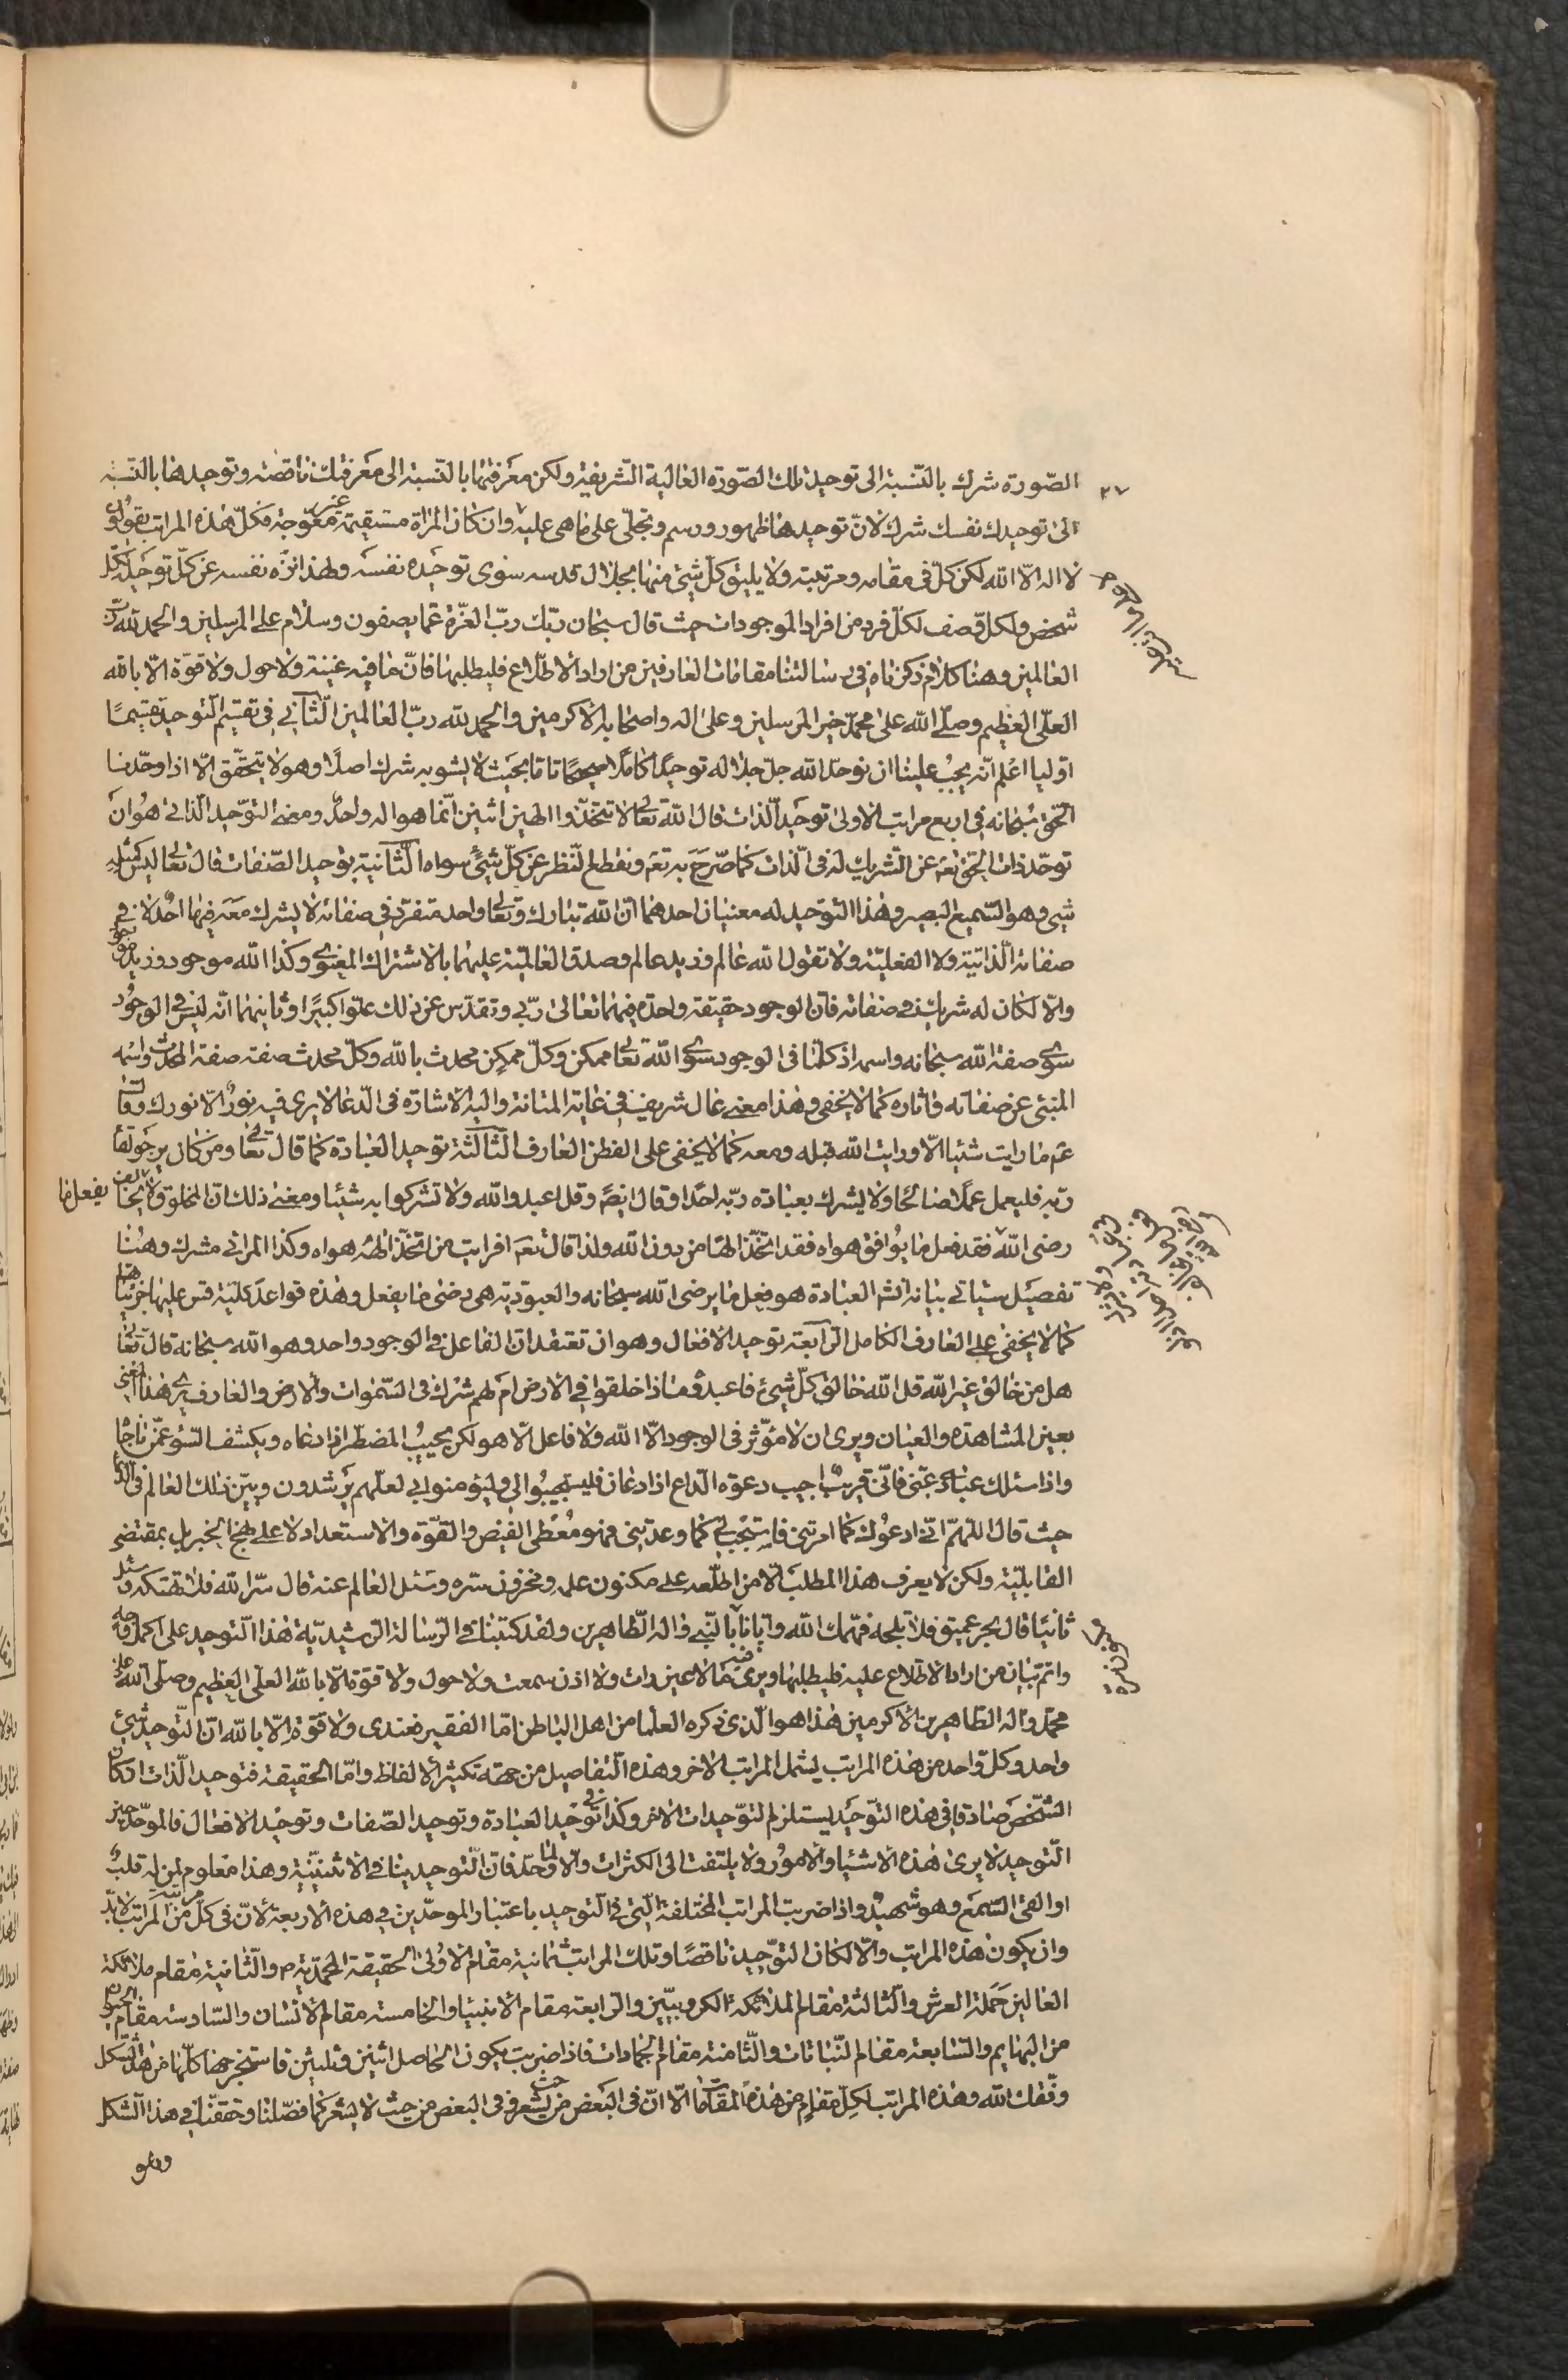 ٢٧
الصّورة شرك بالنّسبة الى توحيد تلك الصّورة العالية الشّريفة ولكن معرفتها بالنّسبة الى معرفتك ناقصة وتوحيدها بالنّسبة
الى توحيدك نفسك شرك لانّ توحيدها ظهور ورسم وتجلّى على ما هى عليه وان كان المرآة مستقيمة غير معوّجة فكلّ هذه المراتب تقول
لا اله الّا الله لكن كلّ فى مقامه ومرتبته ولا يليق كلّ شئ منها بجلال قدسه سوى توحيده نفسه ولهذا نزّه نفسه عن كلّ توحيد لكلّ
شخص ولكلّ وصف لكلّ فرد من افراد الموجودات حيث قال سبحان ربّك ربّ العزّة عمّا يصفون وسلام على المرسلين والحمد لله ربّ
العالمين وهنا كلام ذكرناه فى رسالتنا مقامات العارفين من اراد الاطّلاع فليطلبها فانّ ما فيه غنية ولا حول ولا قوّة الّا بالله
العلّى العظيم وصلّى الله على محمّد خير المرسلين وعلى اله واصحابه الاكرمين والحمد لله ربّ العالمين الثّانى فى تقسيم التّوحيد تقسيمًا
اوّليا اعلم انّه يجب علينا ان نوحّد الله جلّ جلاله توحيدًا كاملًا صحيحًا تامّا بحيث لا يشوبه شرك اصلًا وهو لا يتحقّق الّا اذا وحّدنا
الحّق سبحانه فى اربع مراتب الاولى توحيد الذّات قال الله تعالى لا تتخذّوا الهين اثنين انّما هو اله واحد ومعنى التوّحيد الذّاتى هو ان
توحّد ذات الحّق تعه عن الشّريك له فى الذّات كما صرّح به تعه ونقطع النّظر عن كلّ شئ سواه الثّانية توحيد الصّفات قال تعالى ليس كمثله
شئ وهو السّميع البصير وهذا التّوحيد له معنيان احدهما انّ الله تبارك وتعالى واحد متفرّد فى صفاته لا يشرك معه فيها احد لا فى
صفاته الذّاتية ولا الفعليّة ولا تقول الله عالم وزيد عالم وصدق العالميّة عليهما بالاشتراك المعنوى وكذا الله موجود وزيد موجود
والّا لكان له شريك فى صفاته فانّ الوجود حقيقة واحدة فيهما تعالى ربّى وتقدّس عن ذلك علّوا كبيرًا وثانيهما انّه ليس فى الوجود
سوى صفة الله سبحانه واسمه اذ كلّما فى الوجود سوى الله تعالى ممكن وكلّ ممكن محدث بالله وكلّ محدث صفة صفة المحدث واسمه
المنبئ عن صفاته واثاره كما لا يخفى وهذا معنى عال شريف فى غاية المتانة واليه الاشارة فى الدّعا لا يرى فيه نور الّا نورك وقال
عم ما رايت شئيا الّا ورايت الله قبله ومعه كما لا يخفى على الفطن العارف الثّالثة توحيد العبادة كما قال تعالى ومن كان يرجو لقا
ربّه فليعمل عملًا صالحا ولا يشرك بعبادة ربّه احدًا وقال ايضًا وقل اعبدوا الله ولا تشركوا به شئيا ومعنى ذلك انّ المخلوق يفعل ما
رضى الله فقد فعل ما يوافق هواه فقد اتّخذ الهًا من دون الله ولذا قال تعه افرايت من اتّخذ الهه هواه وكذا المرائى مشرك وهنا
تفصيل سياتى بيانه انشه العبادة هو فعل ما يرضى الله سبحانه والعبوّدية هى رضى ما يفعل وهذه قواعد كليّة قس عليها جزئيّاتها
كما لا يخفى على العارف الكامل الرّابعة توحيد الافعال وهو ان تعتقد انّ الفاعل فى الوجود واحد وهو الله سبحانه قال تعالى
هل من خالق غير الله قل الله خالق كلّ شئ فاعبدوه ماذا خلقوا فى الارض ام لهم شرك فى السّموات والارض والعارف يرى هذا المعنى
بعين المشاهدة والعيان ويرى ان لا مؤثّر فى الوجود الّا الله ولا فاعل الّا هو لكن يجيب المضطرّ اذا دعاه ويكشف السّوء عمّن ناجاه
واذا سئلك عبادى عنّى فانّى قريب اجيب دعوة الدّاع اذا دعان فليستجيبوا لى وليؤمنوا بى لعلّهم يرشدون وبيّن ذلك العالم فى الدّعا
حيث قال اللّهمّ انّى ادعوك كما امرتنى فاستجب لى كما وعدتنى فهو معطى الفيض والقوّة والاستعداد لا على نهج الجبر بل بمقتضى
القابليّة ولكن لا يعرف هذا المطلب الّا من اطلّعه على مكنون علمه ومخزون سرّه وسئل العالم عنه قال سرّ الله فلا تهتكه وسئل
ثانيًا قال بحر عميق فلا تلجه فهّمك الله وايّانا بالنّبى واله الطّاهرين ولقد كتبنا فى الرّسالة الرّشيديّة هذا التّوحيد على اكمل وجه
واتم تبيان من اراد الاطّلاع عليه فليطلبها ويرى فيه ما لا عين رات ولا اذن سمعت ولا حول ولا قوّة الّا بالله العلّى العظيم وصلّى الله على
محمّد واله الطّاهرين الاكرمين هذا هو الّذى ذكره العلما من اهل الباطن امّا الفقير فعندى ولا قوّة الّا بالله انّ التّوحيد شئ
واحد وكلّ واحد من هذه المراتب يشمل المراتب الاخر وهذه التّفاصيل من جهة تكثير الالفاظ وامّا الحقيقة فتوحيد الذّات ان كان
الشّخص صادقا فى هذه التّوحيد يستلزم التّوحيدات الاخر وكذا توحيد العبادة وتوحيد الصّفات وتوحيد الافعال فالموحّد حين
التّوحيد لا يرى هذه الاشيا والامور ولا يلتفت الى الكثرات والّا لما وحّد فانّ التّوحيد ينافى الاثنينيّة وهذا معلوم لمن له قلب
او القى السّمع وهو شهيد واذا ضربت المراتب المختلفة الّتى فى التّوحيد باعتبار الموحّدين فى هذه الاربعة لانّ فى كلّ مرتبة من المراتب لا بدّ
وان يكون هذه المراتب والّا لكان التوّحيد ناقصًا وتلك المراتب ثمانية مقام الاولى الحقيقة المحمّدية ص والثّانية مقام ملائكة
العالين حملة العرش والثّالثة مقام الملائكة الكروبيّين والرّابعة مقام الانبيا والخامسة مقام الانسان والسّادسة مقام الحيوان
من البهايم والسّابعة مقام النّباتات والثّامنة مقام الجمادات فاذا ضربت يكون الحاصل اثنين وثلاثين فاستخرجها كلّها من هذا الشّكل
وفّقك الله وهذه المراتب لكلّ مقام من هذه المقامات الّا انّ فى البعض من حيث يشعر وفى البعض من حيث لا يشعر كما فصّلنا وحققنا فى هذا الشكل
وهو